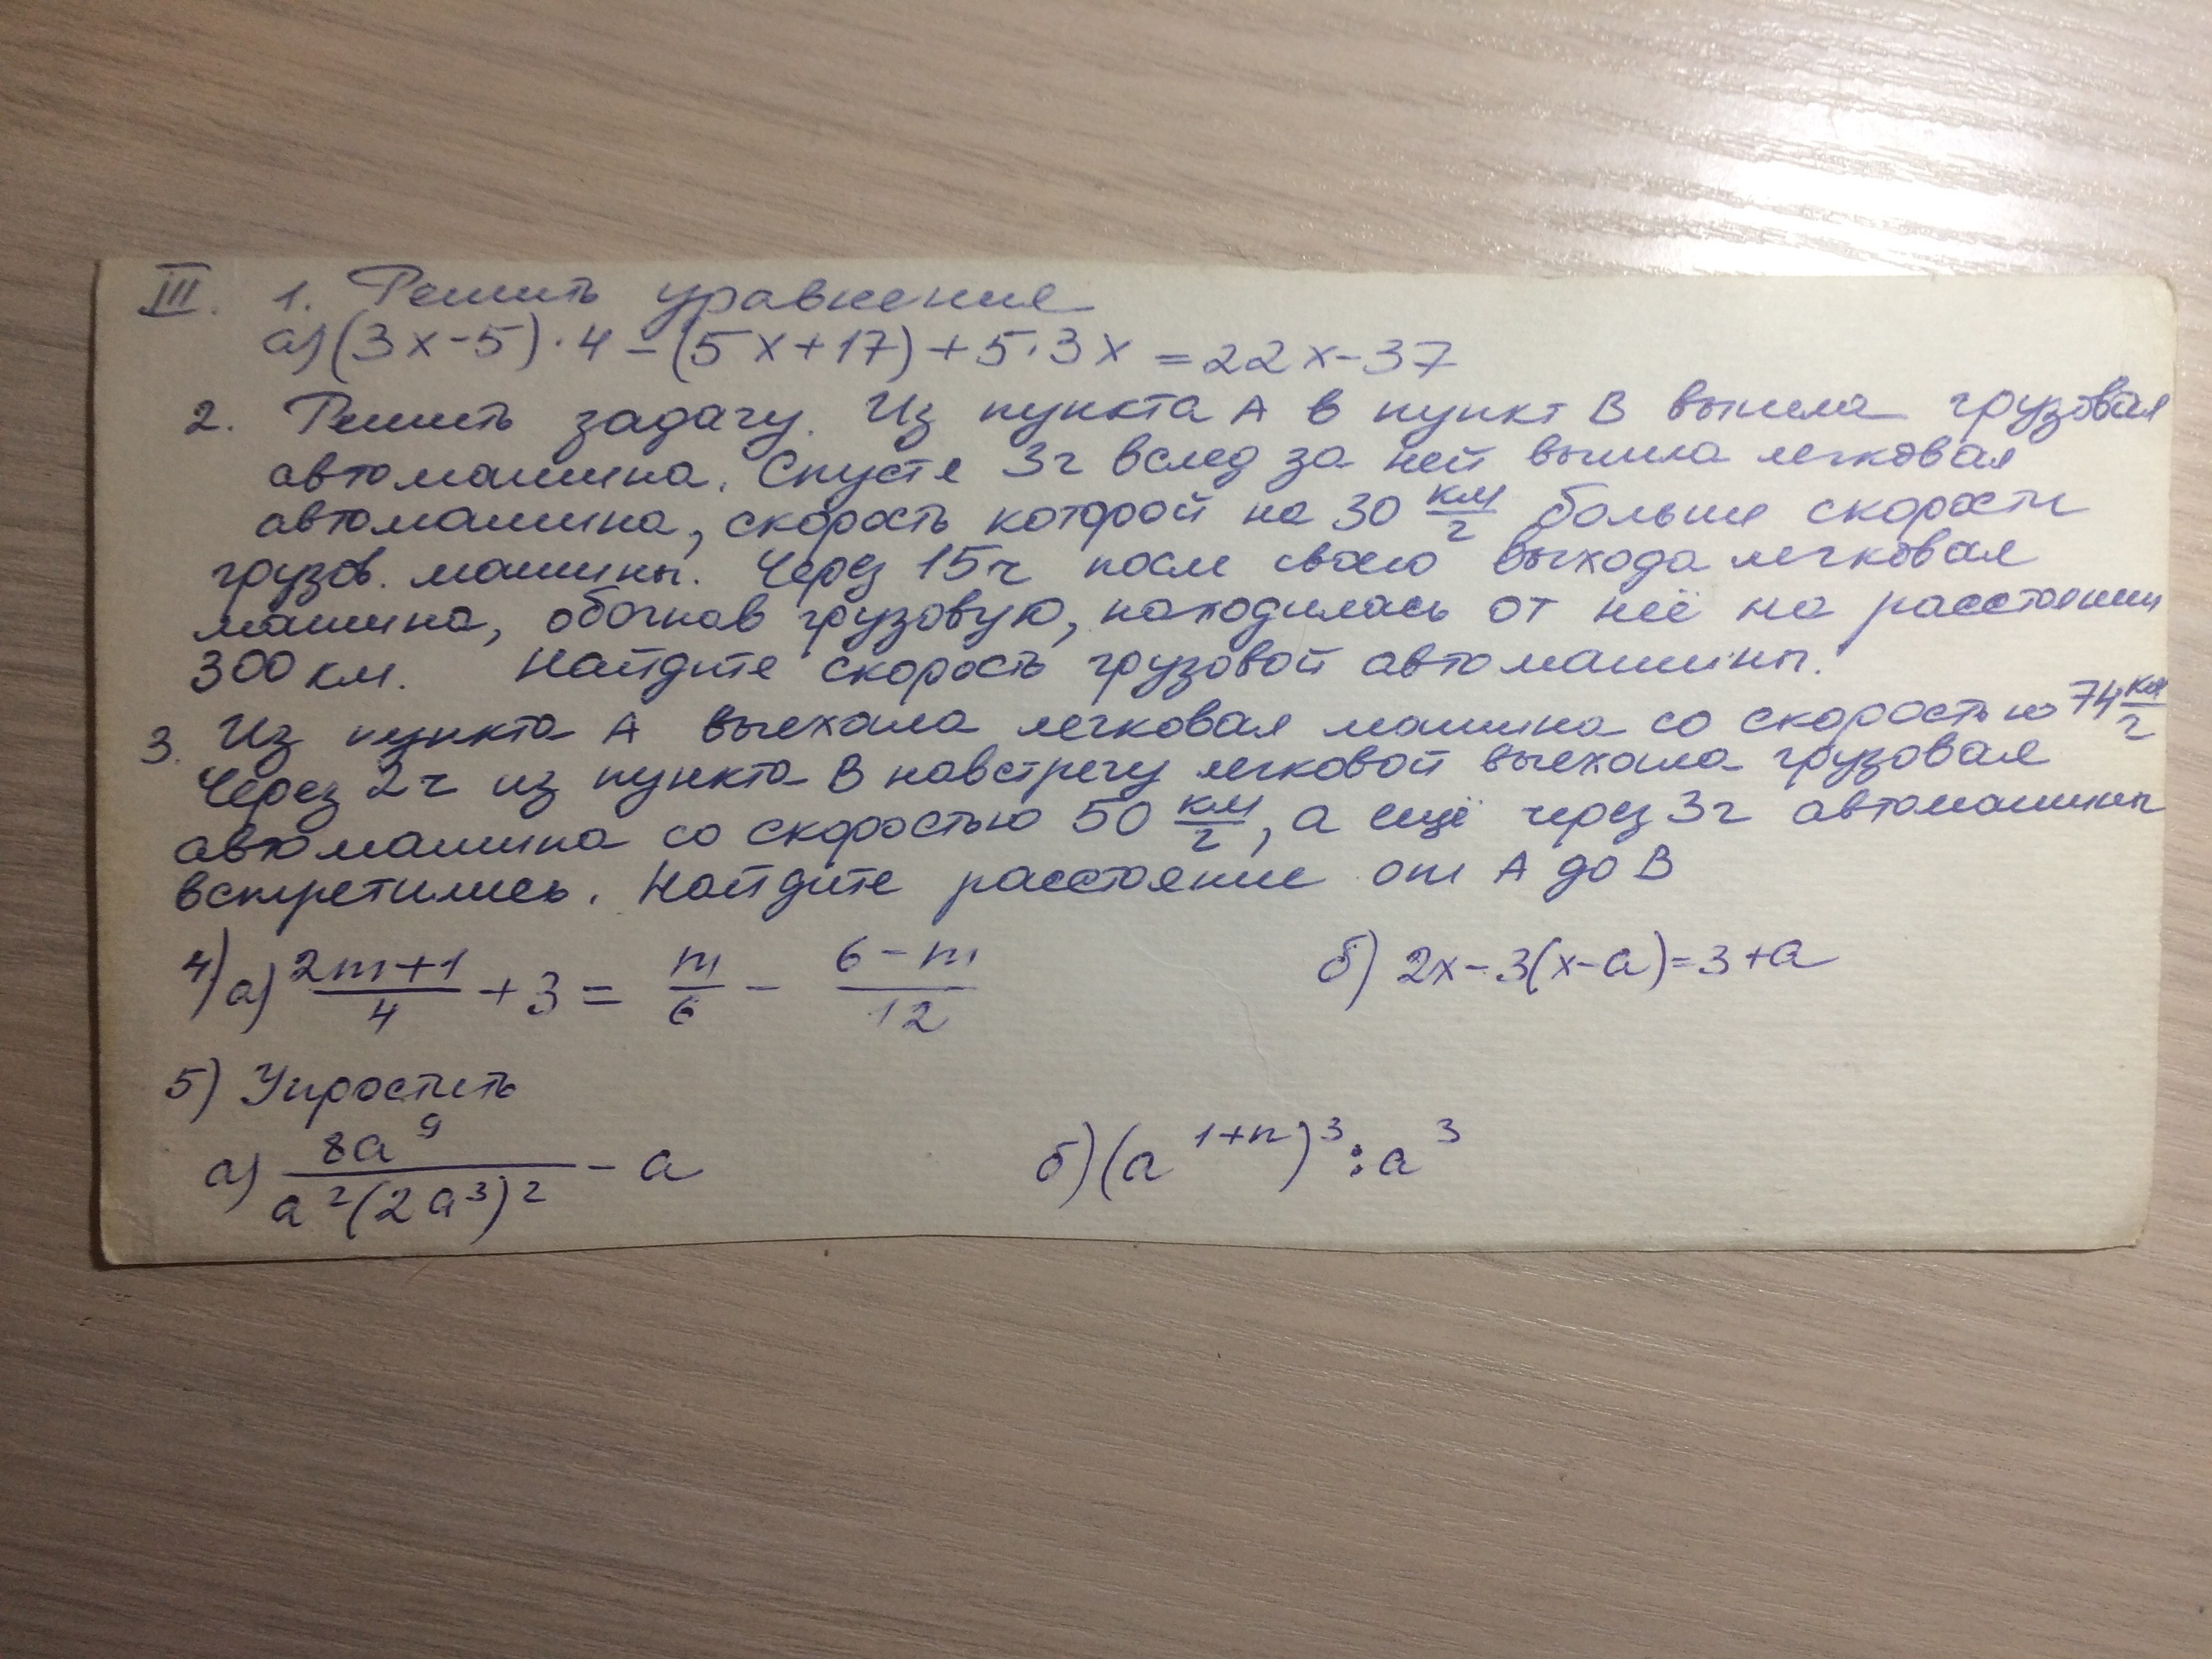 III. 1. Решить уравнение
а) (3x-5)·4-(5x+17)+5·3x=22x-37
2. Решить задачу. Из пункта А в пункт В вышла грузовая
автомашина. Спустя 3ч вслед за ней вышла легковая
автомашина, скорость которой на 30 км/ч больше скорости
грузов. машины. Через 15ч после своего выхода легковая
машина, обогнав грузовую, находилась от неё на расстоянии
300 км. Найдите скорость грузовой автомашины.
3. Из пункта А выехала легковая машина со скоростью 74 км/ч
Через 2ч из пункта В навстречу легковой выехала грузовая
автомашина со скоростью 50 км/ч, а ещё через 3ч автомашины
встретились. Найдите расстояние от А до В
4) а) (2m+1)/4 + 3 = m/6 - (6-m)/12 б) 2x-3(x-a)=3+a
5) Упростить
а) 8a⁹/(a²(2a³)²) - a б) (a¹⁺ⁿ)³:a³